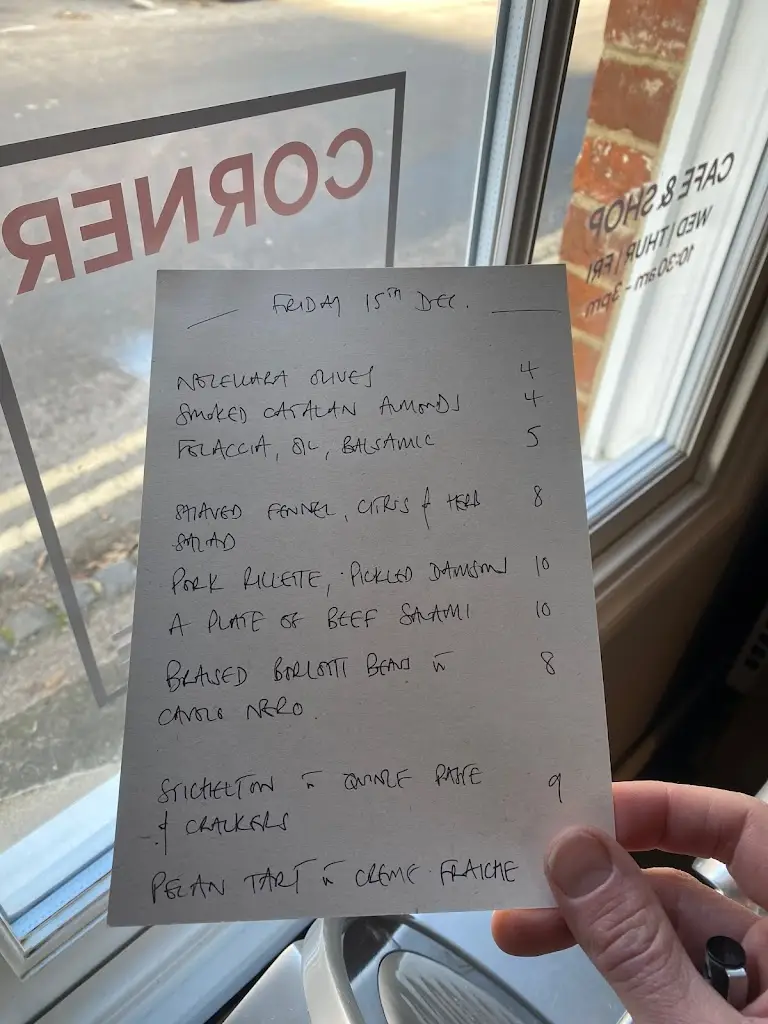 CORNER
CAFE & SHOP
WED | THUR | FRI
10:30am - 3pm
FRIDAY 15TH DEC.
NOCELLARA OLIVES 4
SMOKED CATALAN ALMONDS 4
FOCACCIA, OIL, BALSAMIC 5
SHAVED FENNEL, CITRUS & HERB 8
SALAD
PORK RILLETTE, PICKLED DAMSON 10
A PLATE OF BEEF SALAMI 10
BRAISED BORLOTTI BEANS W 8
CAVOLO NERO.
STICHELTON W QUINCE PASTE 9
& CRACKERS
PECAN TART W CREME FRAICHE